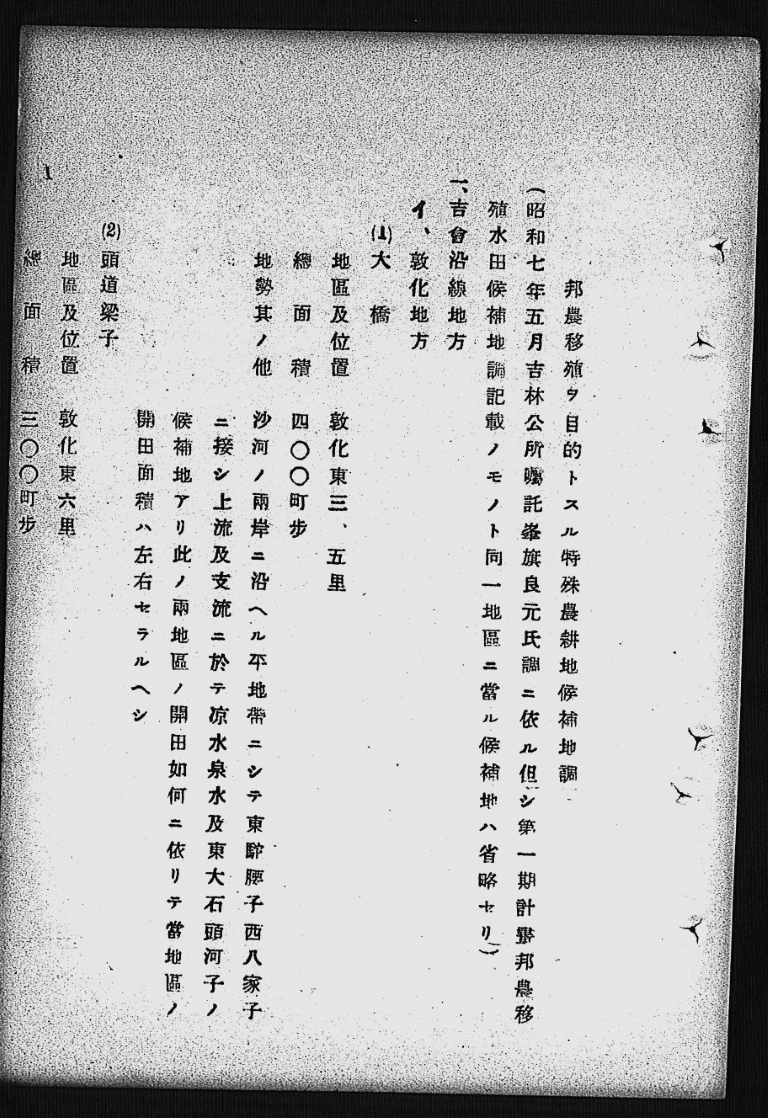 邦農移殖ヲ目的トスル特殊農耕地候補地調
(昭和七年五月吉林公所囑託峯旗良元氏調ニ依ル但シ第一期計畫邦農移
殖水田候補地調記載ノモノト同一地區ニ當ル候補地ハ省略セリ)
一、吉會沿線地方
イ、敦化地方
(1)大橋
地區及位置 敦化東三、五里
總面積 四〇〇町步
地勢其ノ他 沙河ノ兩岸ニ沿ヘル平地帶ニシテ東腰子西八家子
ニ接シ上流及支流ニ於テ凉水泉水及東大石頭河子ノ
候補地アリ此ノ兩地區ノ開田如何ニ依リテ當地區ノ
開田面積ハ左右セラルヘシ
(2)頭道梁子
地區及位置 敦化東六里
總面積 三〇〇町步
1